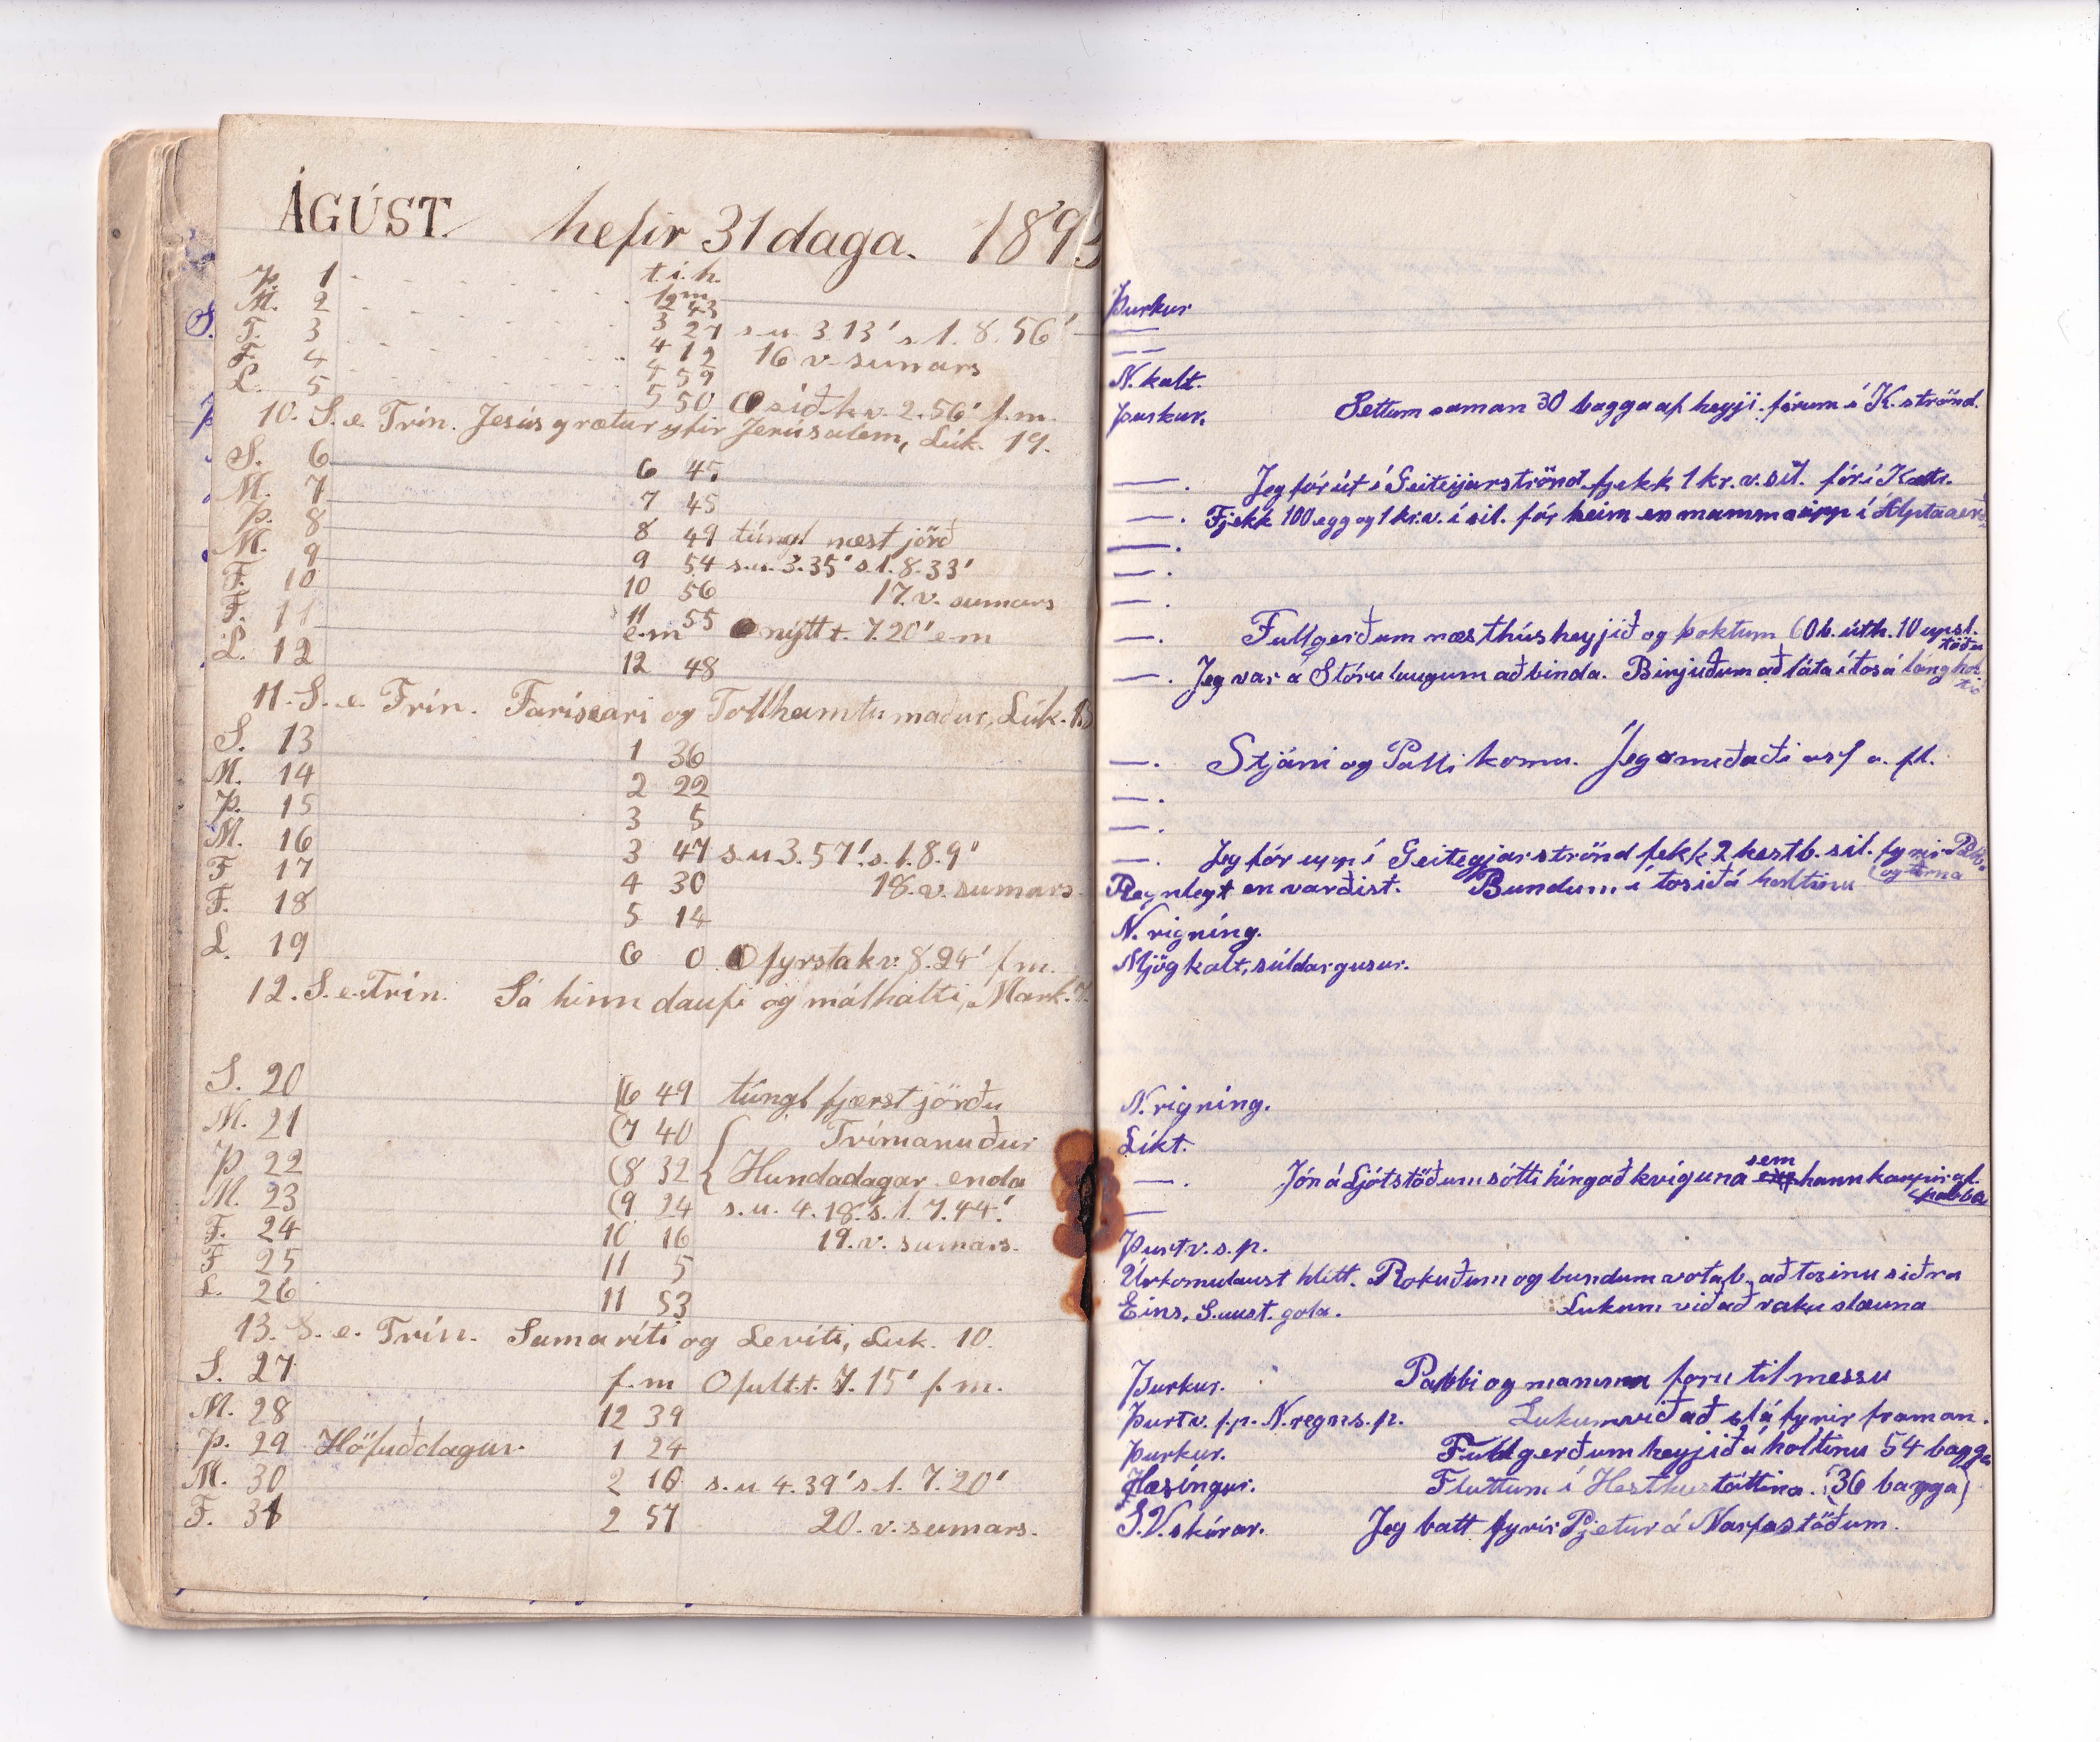 ÁGÚST. hefir 31 daga. 1893
t. í. h.
Þ. 1
f.m.
M. 2 12 43
T. 3 3 27 s.u. 3.13' s.l. 8.56'
F. 4 4 12 16 v. sumars
4 59
L. 5 5 50 síð. kv. 2.56' f.m.
10. S. e. Trín. Jesús grætur yfir Jerúsalem, Lúk. 19.
S. 6 6 45
M. 7 7 45
Þ. 8 8 49 túngl næst jörð
M. 9 9 54 s.u. 3.35' s.l. 8.33'
F. 10 10 56 17. v. sumars
F. 11 11 55 nýtt t. 7.20' e.m
e.m
L. 12 12 48
11. S. e. Trín. Fariseari og Tollheimtumaður, Lúk. 18
S. 13 1 36
M. 14 2 22
Þ. 15 3 5
M. 16 3 47 s.u 3.57'. s.l. 8.9'
F 17 4 30 18. v. sumars
F. 18 5 14
L. 19 6 0 fyrsta kv. 8.24' f.m.
12. S. e. Trín. Sá hinn daufi og málhalti, Mark. 7.
S. 20 6 49 túngl fjærst jörðu
M. 21 7 40 Trímanuður
Þ 22 8 32 Hundadagar enda
M. 23 9 24 s.u. 4.18' s.l. 7.44'.
F. 24 10 16 19. v. sumars.
F 25 11 5
L. 26 11 53
13. S. e. Trín. Samaríti og Levíti, Luk. 10.
S. 27 f.m O fult t. 7.15' f.m.
M. 28 12 39
Þ. 29 Höfuðdagur. 1 24
M. 30 2 10 s.u 4.39' s.l. 7.20'
F. 31 2 57 20. v. sumars.
Þurkur
—
— —
N. kalt.
Þurkur. Settum saman 30 bagga af heyji. fórum í K. strönd.
—. Jeg fór út í Geiteyjarströnd fjekk 1 kr. v. sil. fór í Kálfs.
—. Fjekk 100 egg og 1 kr.v. í sil. fór heim en mamma upp í Álptagerði
—.
—.
—.
—. Fullgerðum næsthúsheyjið og þoktum 60 b. úth. 10 uppsl.
töðu
—. Jeg var á Stórulaugum að binda. Birjuðum að láta í tos á langhol
tið
—. Stjáni og Palli komu. Jeg smíðaði orf o. fl.
—.
—.
—. Jeg fór upp í Geitegjarströnd fekk 2 hestb. sil. fyrir Pabba
og Arna
Regnlegt en varðist. Bundum í tosið á holtinu
N. rigníng.
Mjög kalt, súldargusur.
N. rigníng.
Líkt.
—. Jón á Ljótstöðum sótti híngað kvíguna sem hann kaupir af.
pabba
—
Þurt v. s. p.
Úrkomulaust hlítt. Rokuðum og bundum vota b. að tosinu síðra
Eins, S.aust. gola. Lukum við að raka slæuna
Þurkur. Pabbi og mamma foru til messu
Þurt v. f.p. N. regn s.p. Lukum við að slá fyrir framan.
Þurkur. Fullgerðum heyjið á holtinu 54 bagga
Hæsíngur. Fluttum í Hesthustóttina. (36 bagga)
S.V. skúrar. Jeg batt fyrir Pjetur á Narfastöðum.